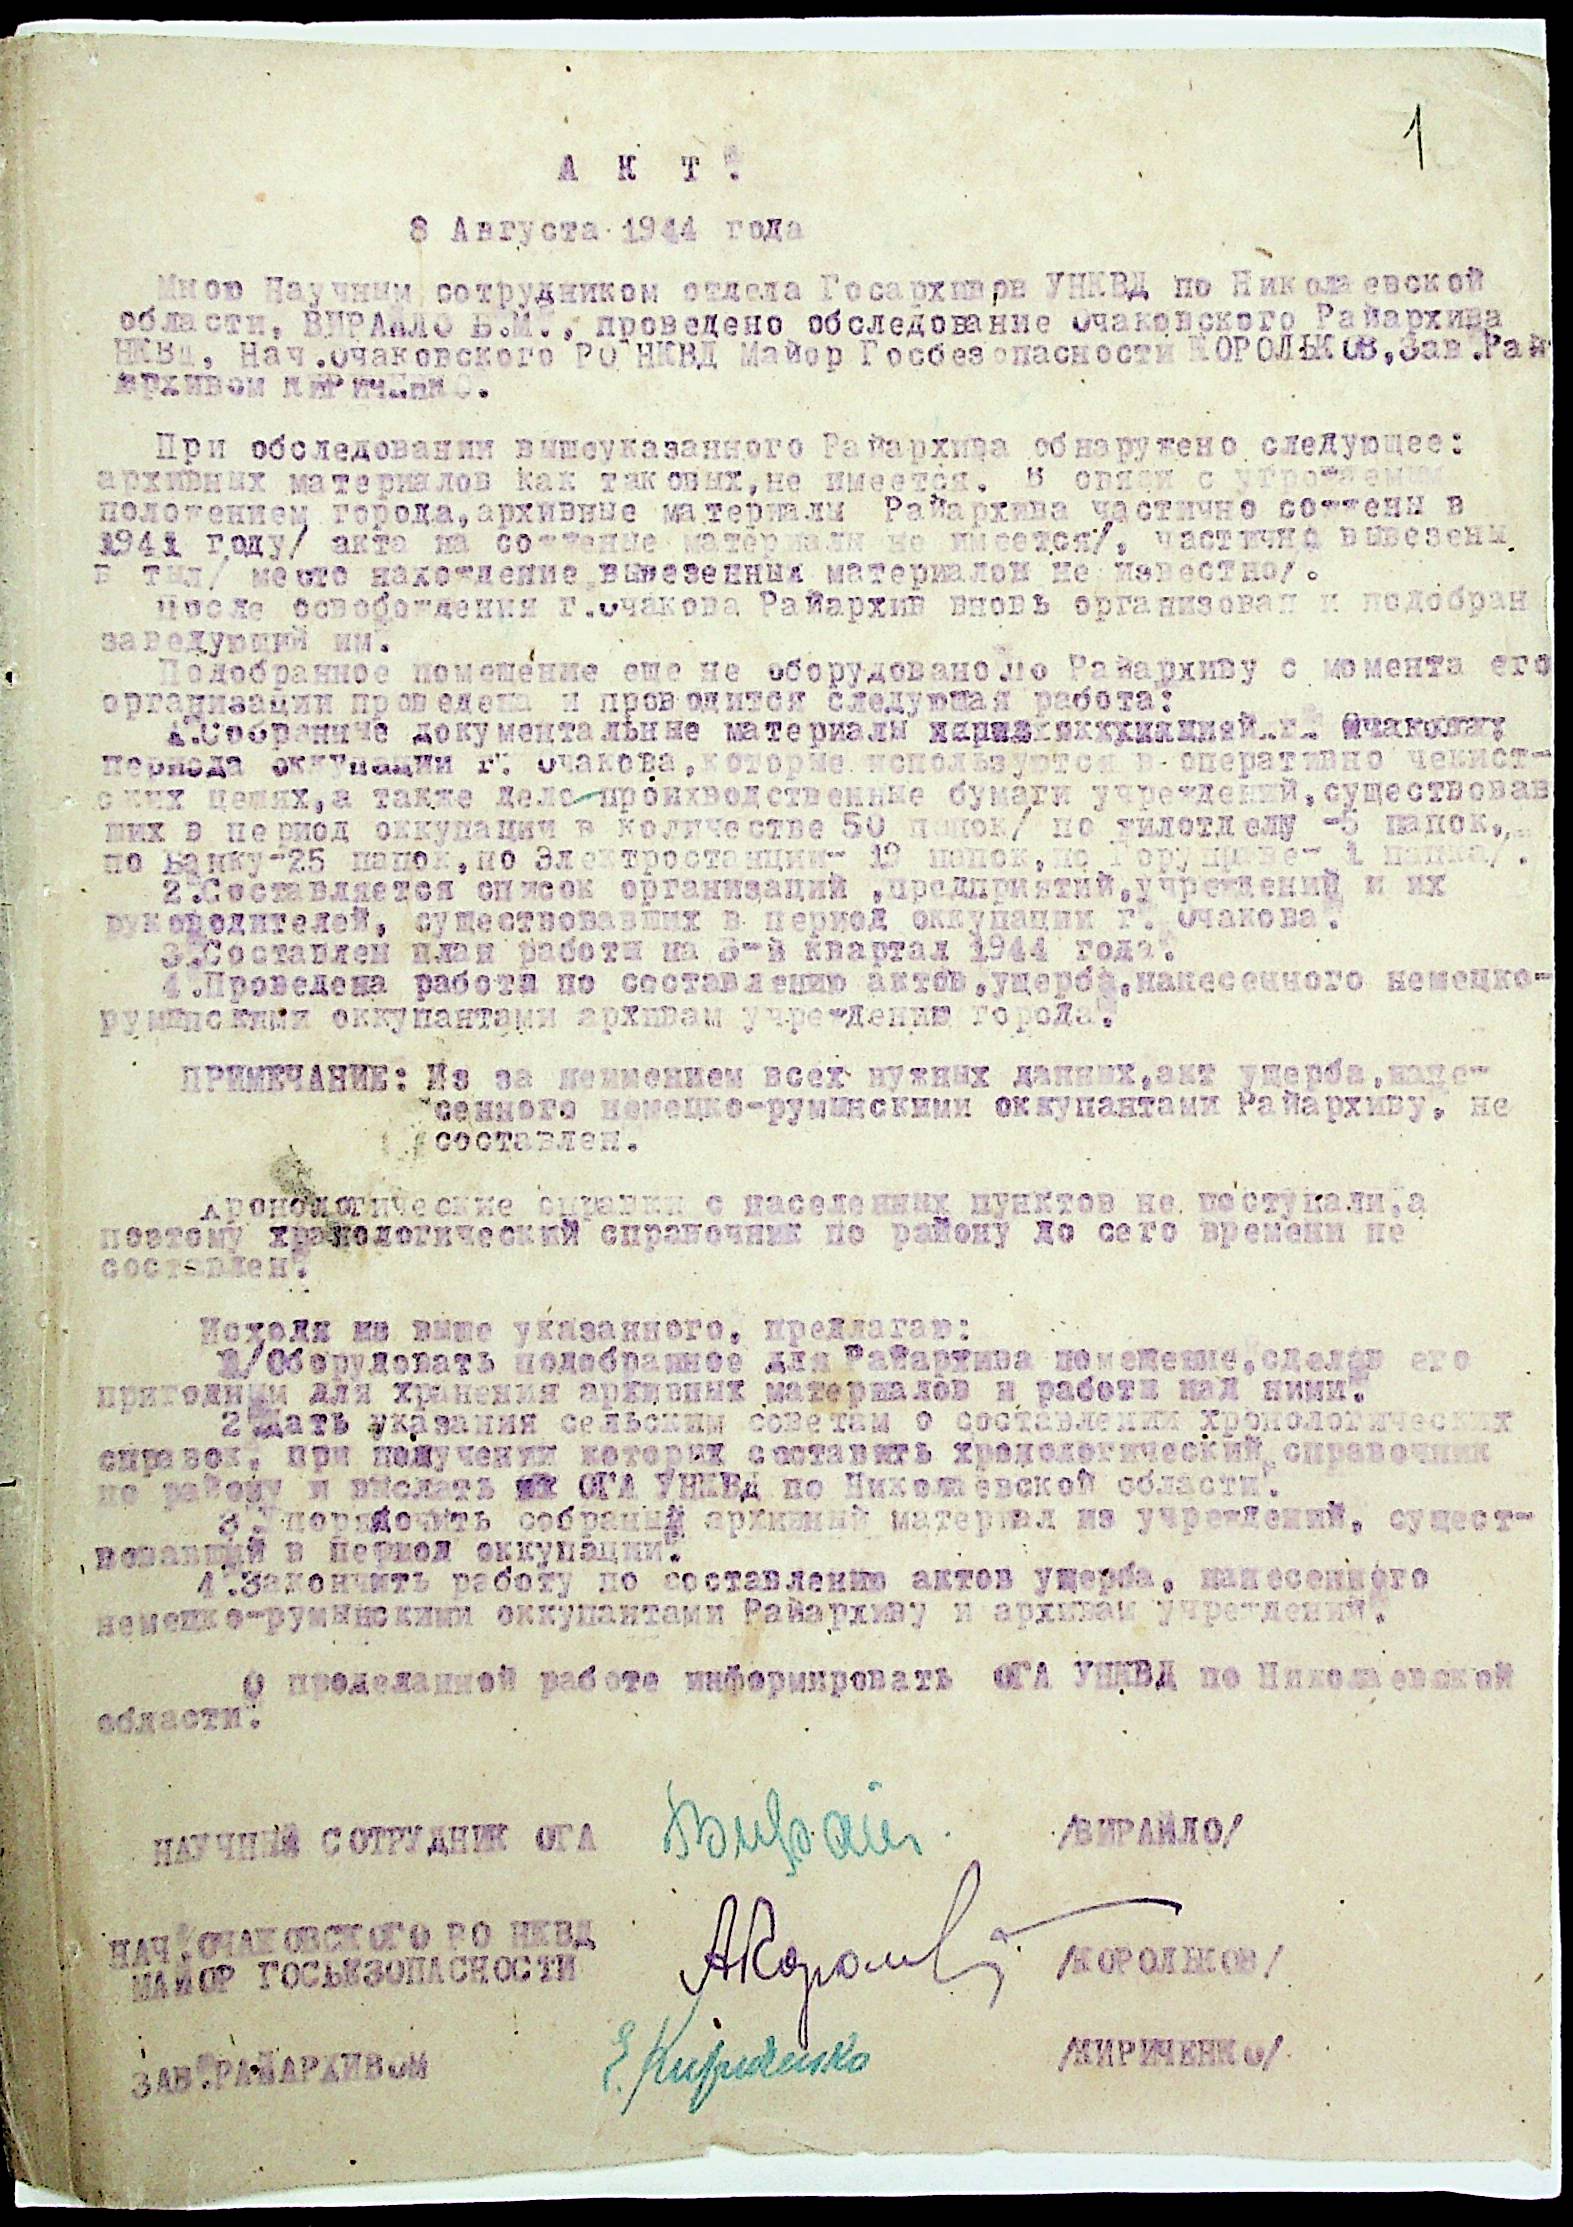 1
А К Т.
8 Августа 1944 года
Мною Научным сотрудником отдела Госархивов УНКВД по Николаевской
области, ВИРАЙЛО В.М., проведено обследование Очаковского Райархива
НКВД, Нач.Очаковского РО НКВД Майор Госбезопасности КОРОЛЬКОВ, Зав.Рай
архивом КИРИЧЕНКО.
При обследовании вышеуказанного Райархива обнаружено следующее:
архивных материалов как таковых, не имеется. В связи с угрожаемым
положением города, архивные материалы Райархива частично сожжены в
1941 году/ акта на сожжение материали не имеется/, частично вывезены
в тыл/ место нахождение вывезенных материалов не известно/.
После освобождения г.Очакова Райархив вновь организован и подобран
заведующий им.
Подобранное помещение еще не оборудовано По Райархиву с момента его
организации проведена и проводится следующая работа:
1.Собранные документальные материалы
периода оккупации г. Очакова, которые используются в оперативно чекист-
ских целях, а также дело-производственные бумаги учреждений, существовав
ших в период оккупации в количестве 50 папок/ по -5 папок,
по Банку-25 папок, по Электростанции- 19 папок, по Горуправе- 1 папка/.
2.Составляется список организаций, предприятий, учреждений и их
руководителей, существовавших в период оккупации г. Очакова.
3.Составлен план работы на 3-й квартал 1944 года.
4.Проведена работа по составлению актов, ущерба, нанесенного немецко-
румынскими оккупантами архивам учреждений города.
ПРИМЕЧАНИЕ: Из за неимением всех нужных данных, акт ущерба, нане-
сенного немецко-румынскими оккупантами Райархиву, не
составлен.
Хронологические справки с населенных пунктов не поступали, а
поэтому хронологический справочник по району до сего времени не
составлен.
Исходя из выше указанного, предлагаю:
1/Оборудовать подобранное для Райархива помещение, сделав его
пригодным для хранения архивных материалов и работы над ними.
2.Дать указания сельским советам о составлении хронологических
справок, при получении которых составить хронологический справочник
по району и выслать их ОГА УНКВД по Николаевской области.
3.Упорядочить собраный архивный материал из учреждений, сущест-
вовавший в период оккупации.
4.Закончить работу по составлению актов ущерба, нанесенного
немецко-румынскими оккупантами Райархиву и архивам учреждений.
О проделанной работе информировать ОГА УНКВД по Николаевской
области.
НАУЧНЫЙ СОТРУДНИК ОГА Вирайл. /ВИРАЙЛО/
НАЧ.ОЧАКОВСКОГО РО НКВД
МАЙОР ГОСБЕЗОПАСНОСТИ АКорольков /КОРОЛЬКОВ/
ЗАВ.РАЙАРХИВОМ Е.Кириченко /КИРИЧЕНКО/